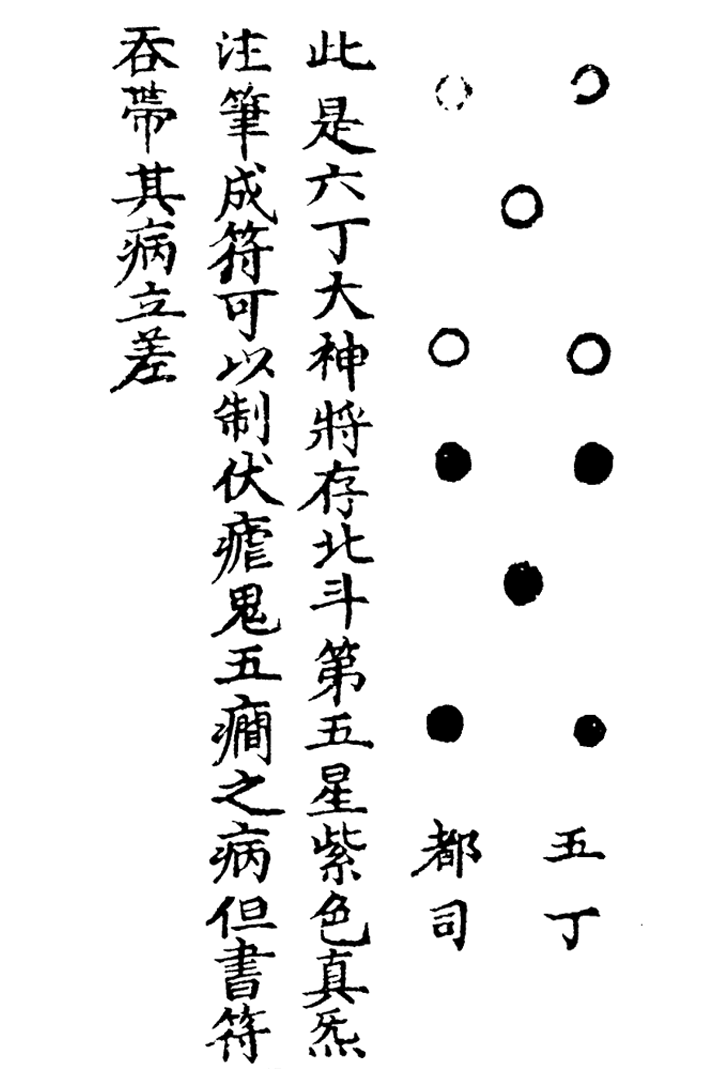 五丁
都司
此是六丁大神將存北斗第五星紫色真炁
注筆成符可以制伏瘧鬼五癇之病但書符
吞帶其病立差